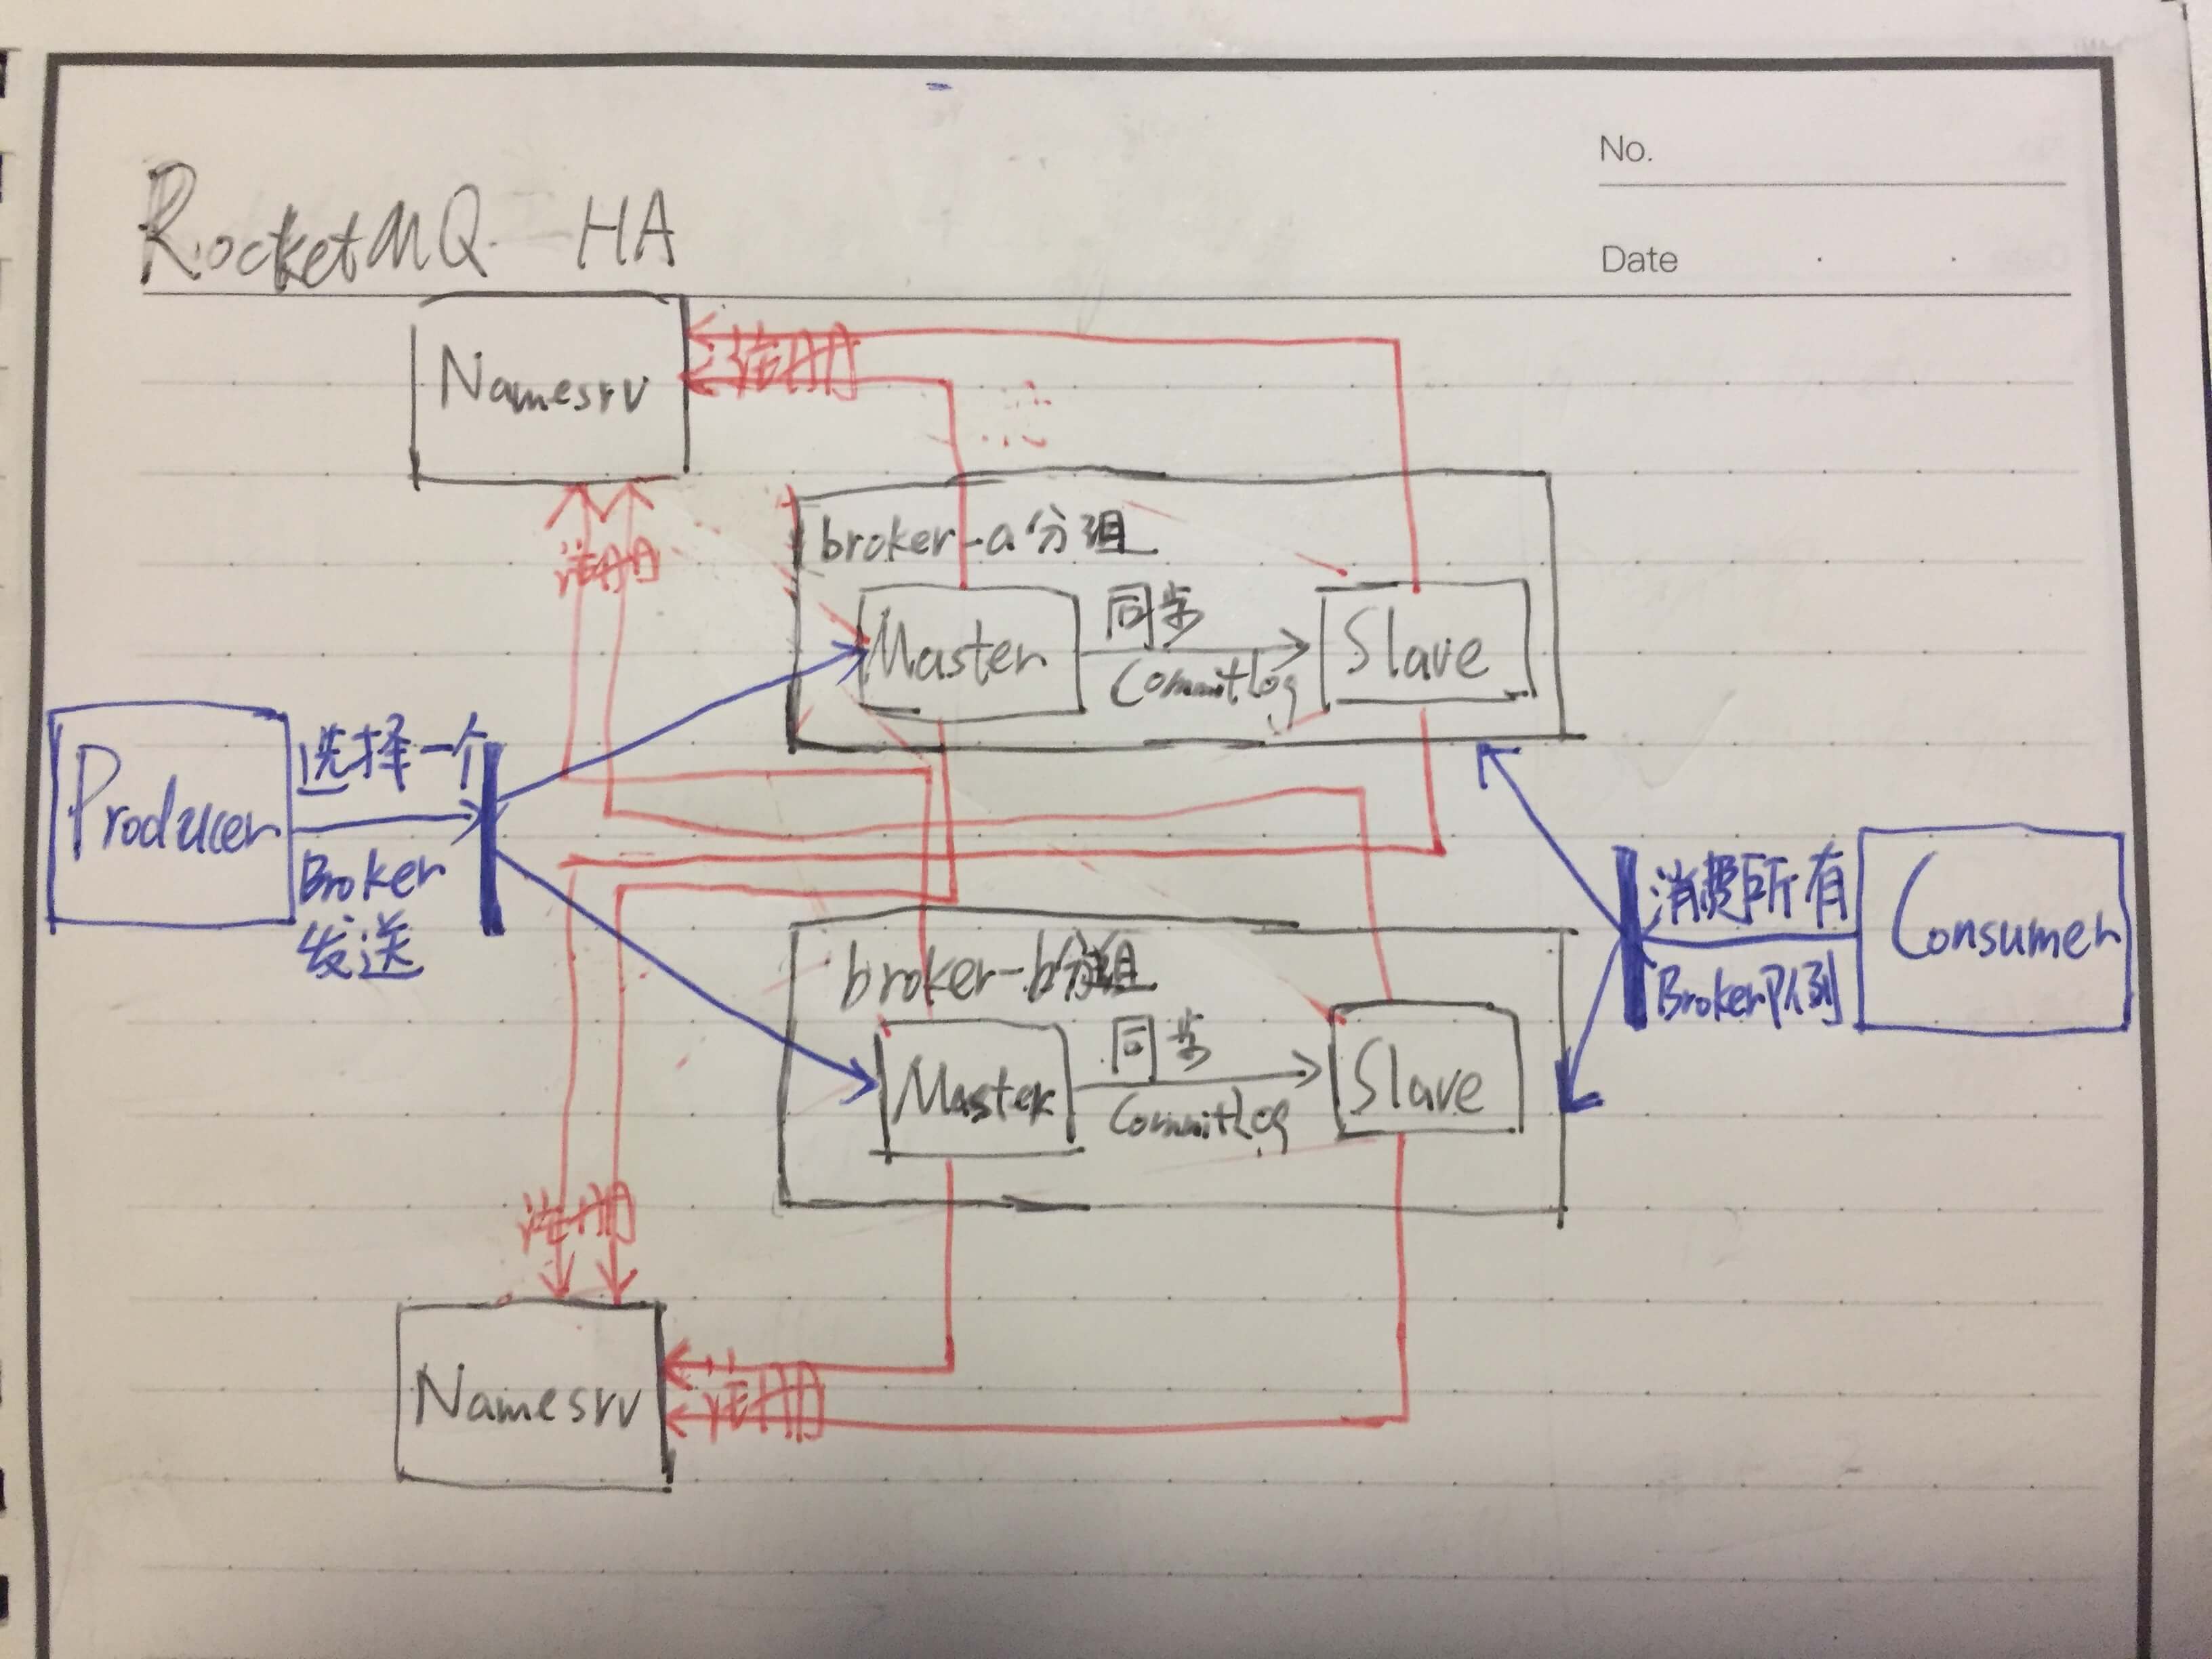 No.
RocketMQ HA
Date
Namesrv
注册
注册
broker-a分组
Master
同步
CommitLog
Slave
Producer
选择一个
Broker
发送
消费所有
Broker队列
Consumer
broker-b分组
Master
同步
CommitLog
Slave
注册
Namesrv
注册